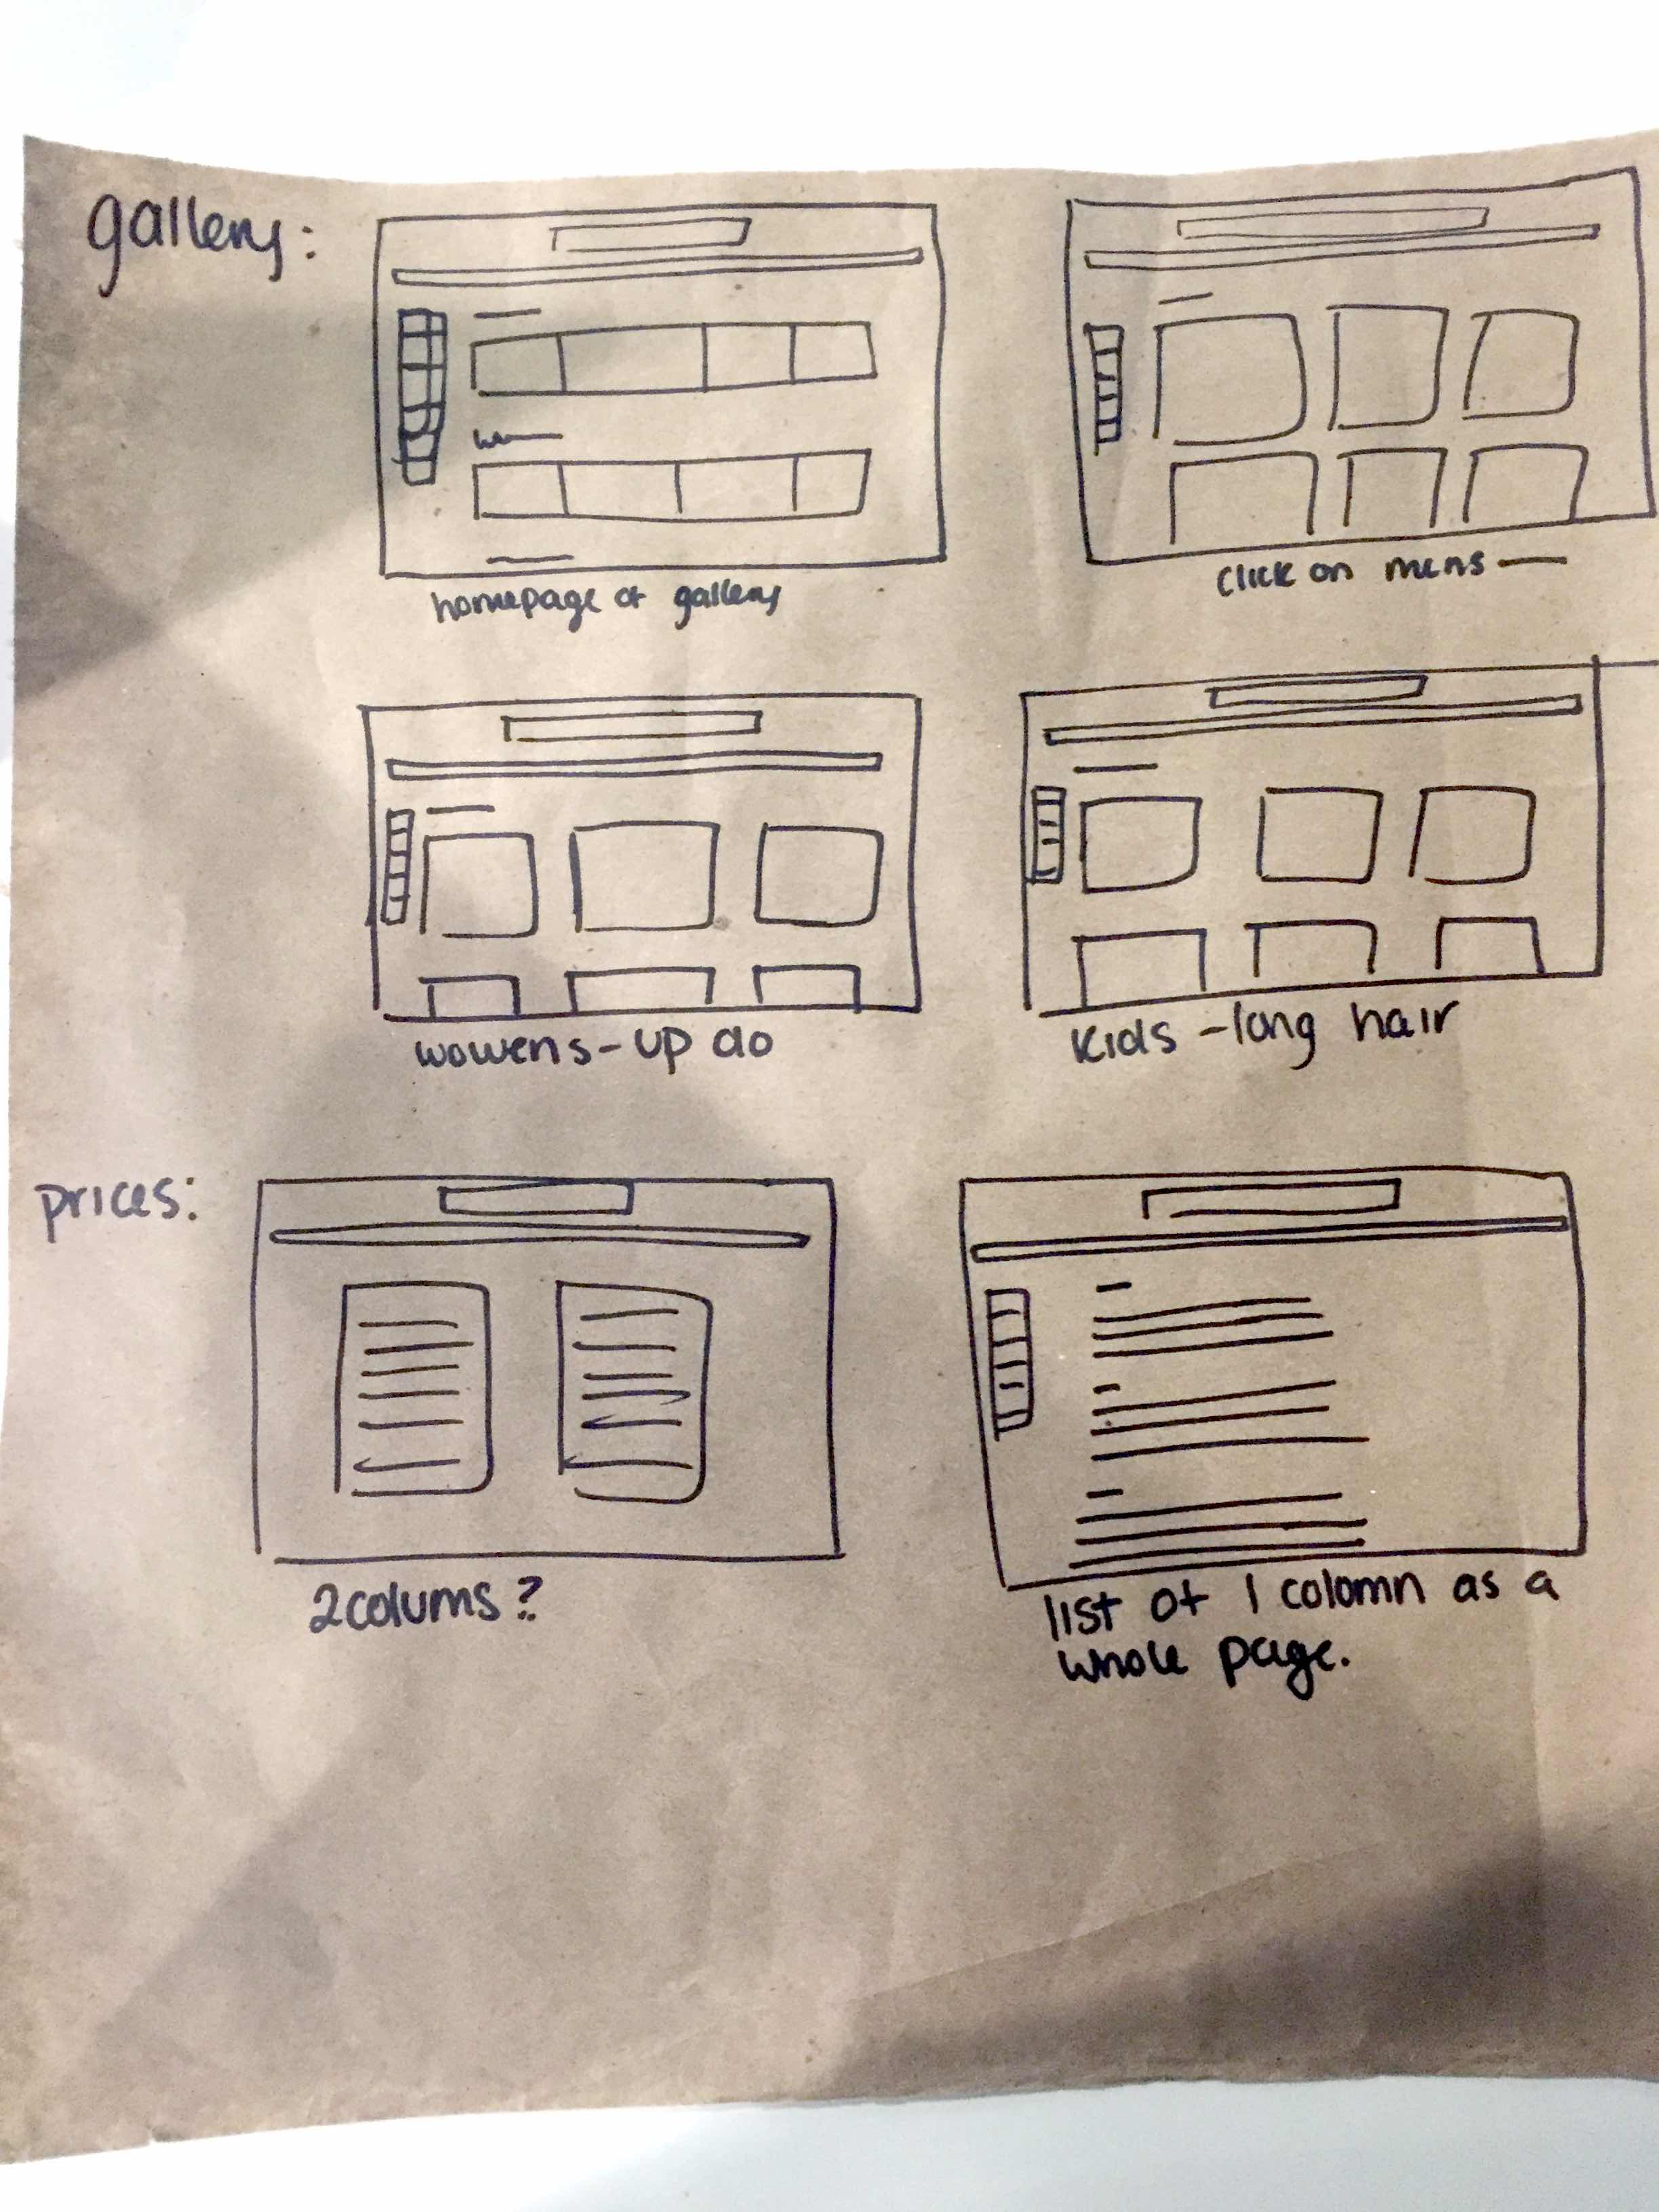 gallery:
homepage of gallery
click on mens —
wowens - up do
kids - long hair
prices:
2 colums?
list of 1 colomn as a
whole page.